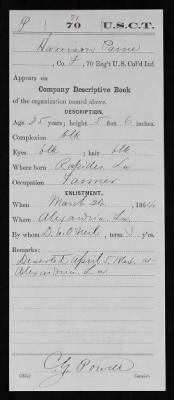 P 71 70 U.S.C.T.
Harrison Payne
, Co. F, 70 Reg't U. S. Col'd Inf.
Appears on
Company Descriptive Book
of the organization named above.
DESCRIPTION.
Age 25 years; height 5 feet 6 inches.
Complexion blk
Eyes blk ; hair blk
Where born Rapides, La
Occupation Farmer
ENLISTMENT.
When March 26, 1864
Where Alexandria, La.
By whom D. C. O'Neil; term 3 y'rs.
Remarks:
Deserted April 5. at
Alexandria, La
Copyist.